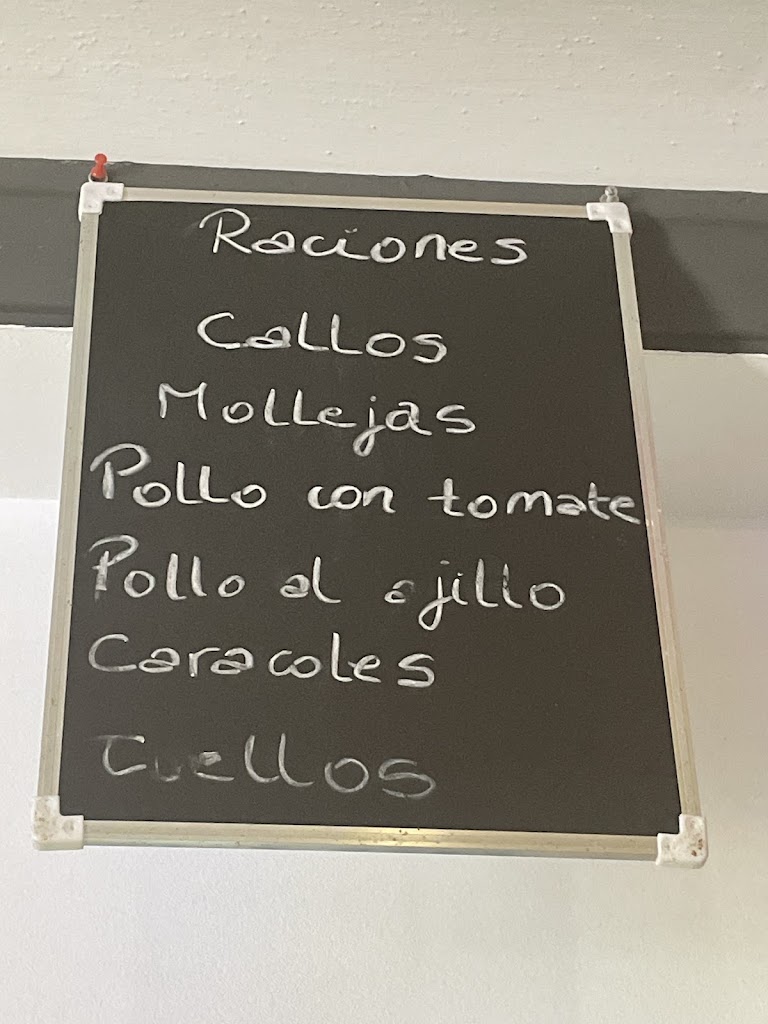 Raciones
Callos
Mollejas
Pollo con tomate
Pollo al ajillo
Caracoles
Cuellos